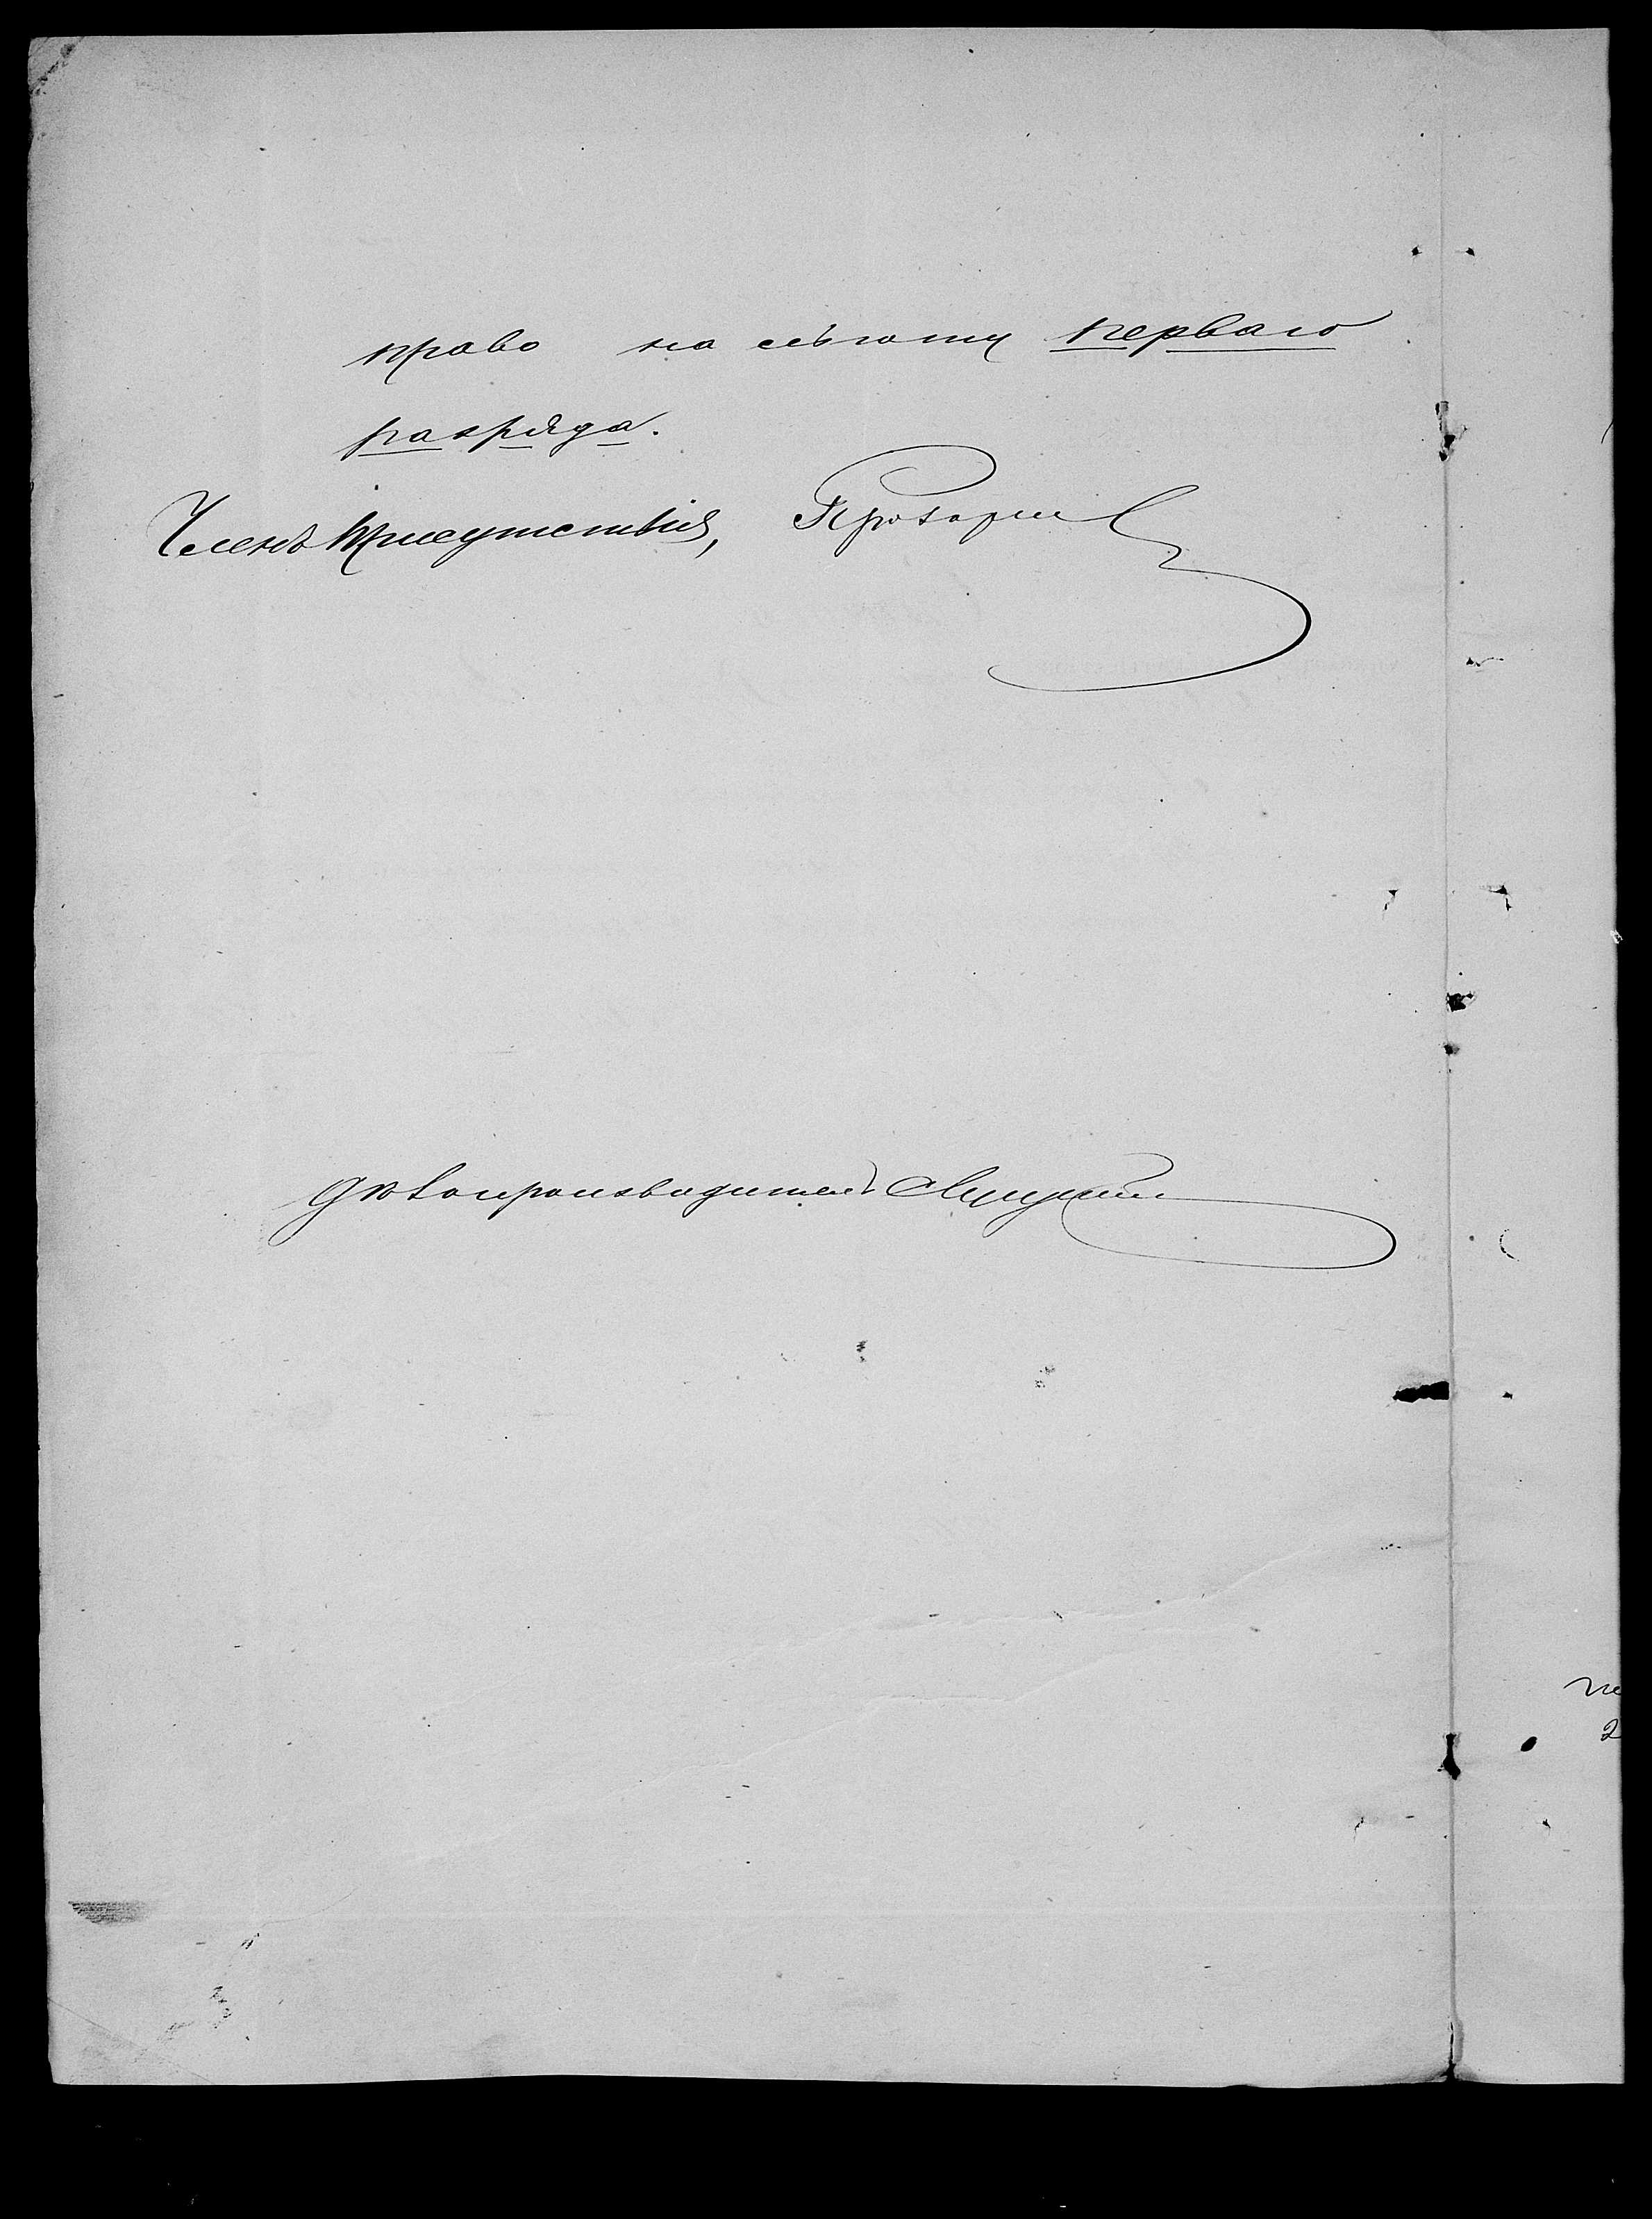 право на льготу перваго
разряда.
Членъ Присутствія,
Дѣлопроизводитель